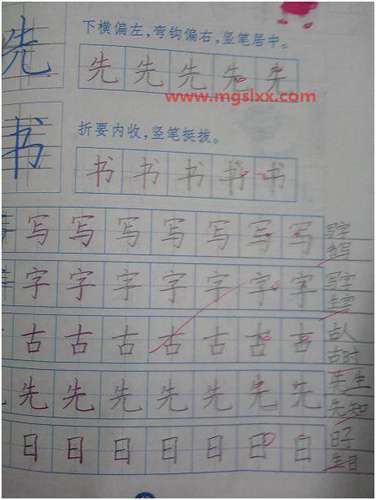 先
下横偏左，弯钩偏右，竖笔居中。
先 先 先 先 先
www.mgslxx.com
书
折要内收，竖笔挺拔。
书 书 书 书 书
写 写 写 写 写 写 写
字 字 字 字 字 字 字
古 古 古 古 古 古 古 古人
古时
先 先 先 先 先 先 先 先生
先知
日 日 日 日 日 日 日 日子
生日